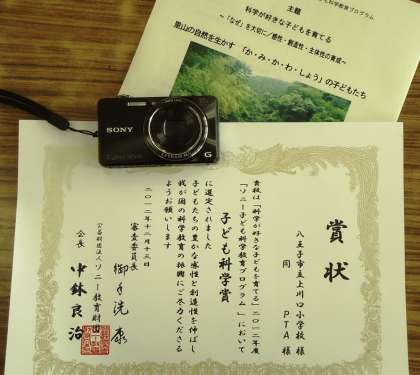 子ども科学教育プログラム
主題
科学が好きな子どもを育てる
～「なぜ」を大切に／感性・創造性・主体性の育成～
里山の自然を生かす 「か・み・か・わ・しょう」の子どもたち
SONY
Cyber-shot
G
賞状
八王子市立上川口小学校 様
同 PTA 様
貴校は「科学が好きな子どもを育てる」二〇一二年度
「ソニー子ども科学教育プログラム」において
子ども科学賞
に選定されました
子どもたちの豊かな感性と創造性を伸ばし
我が国の科学教育の振興にご尽力くださる
ようお願いします
二〇一二年十二月十三日
審査委員長 御手洗康
公益財団法人ソニー教育財団
会長 中鉢良治